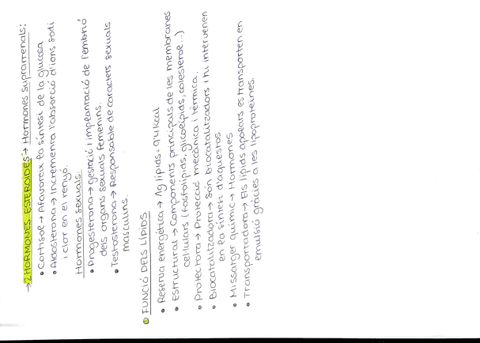 → 2 HORMONES ESTEROIDES → Hormones suprarrenals:
• Cortisol → Afavoreix la síntesi de la glucosa
• Aldosterona → Incrementa l'absorció d'ions sodi
i clor en el renyó.
Hormones sexuals.
• Progesterona → gestació i implantació de l'embrió
dels organs sexuals femenins.
• Testosterona → Responsable de caracters sexuals
masculins.
FUNCIÓ DELS LÍPIDS
• Reserva energètica → 1g lípids = 9'4 kcal
• Estructural → Components principals de les membranes
cel·lulars (fosfolípids, glicolípids, colesterol...)
• Protectora → Protecció mecànica i tèrmica.
• Biocatalitzadora → Són biocatalitzadors i hi intervenen
en la síntesi d'aquestos
• Missatger químic → Hormones
• Transportadora → Els lípids apolars es transporten en
emulsió gràcies a les lipoproteïnes.